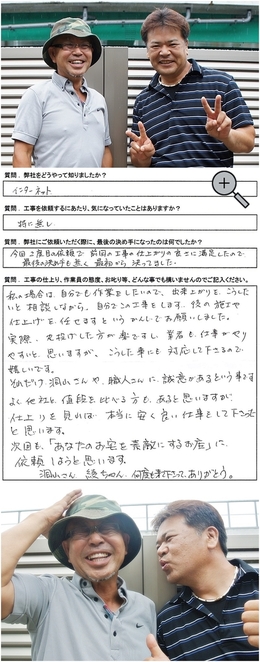 質問. 弊社をどうやって知りましたか?
インターネット
質問. 工事を依頼するにあたり、気になっていたことはありますか?
特に無し
質問. 弊社にご依頼いただく際に、最後の決め手になったのは何でしたか?
今回2度目の依頼で前回の工事の仕上がりの良さに満足したので
最後の決め手も無く最初から決ってました。
質問. 工事の仕上り、作業員の態度、お叱り等、どんな事でも構いませんのでご記入ください。
私の場合は、自分でも作業をしたいので、出来上がりを、こうしたい
と相談しながら、自分でこの工事をします。後の施工や
仕上げを任せますというかんじでお願いしました。
実際、丸投げした方が楽ですし、業者も仕事がやり
やすいと思いますが、こうした事にも対応して下さるので
嬉しいです。
それだけ洞山さんや、職人さんに誠意があるという事です
よく他社と値段を比べる方も、あると思いますが、
仕上りを見れば本当に安く良い仕事をして下さった
と思います。
次回も「あなたのお宅を素敵にするお店」に
依頼しようと思います。
何度も来て下さって、ありがとう。